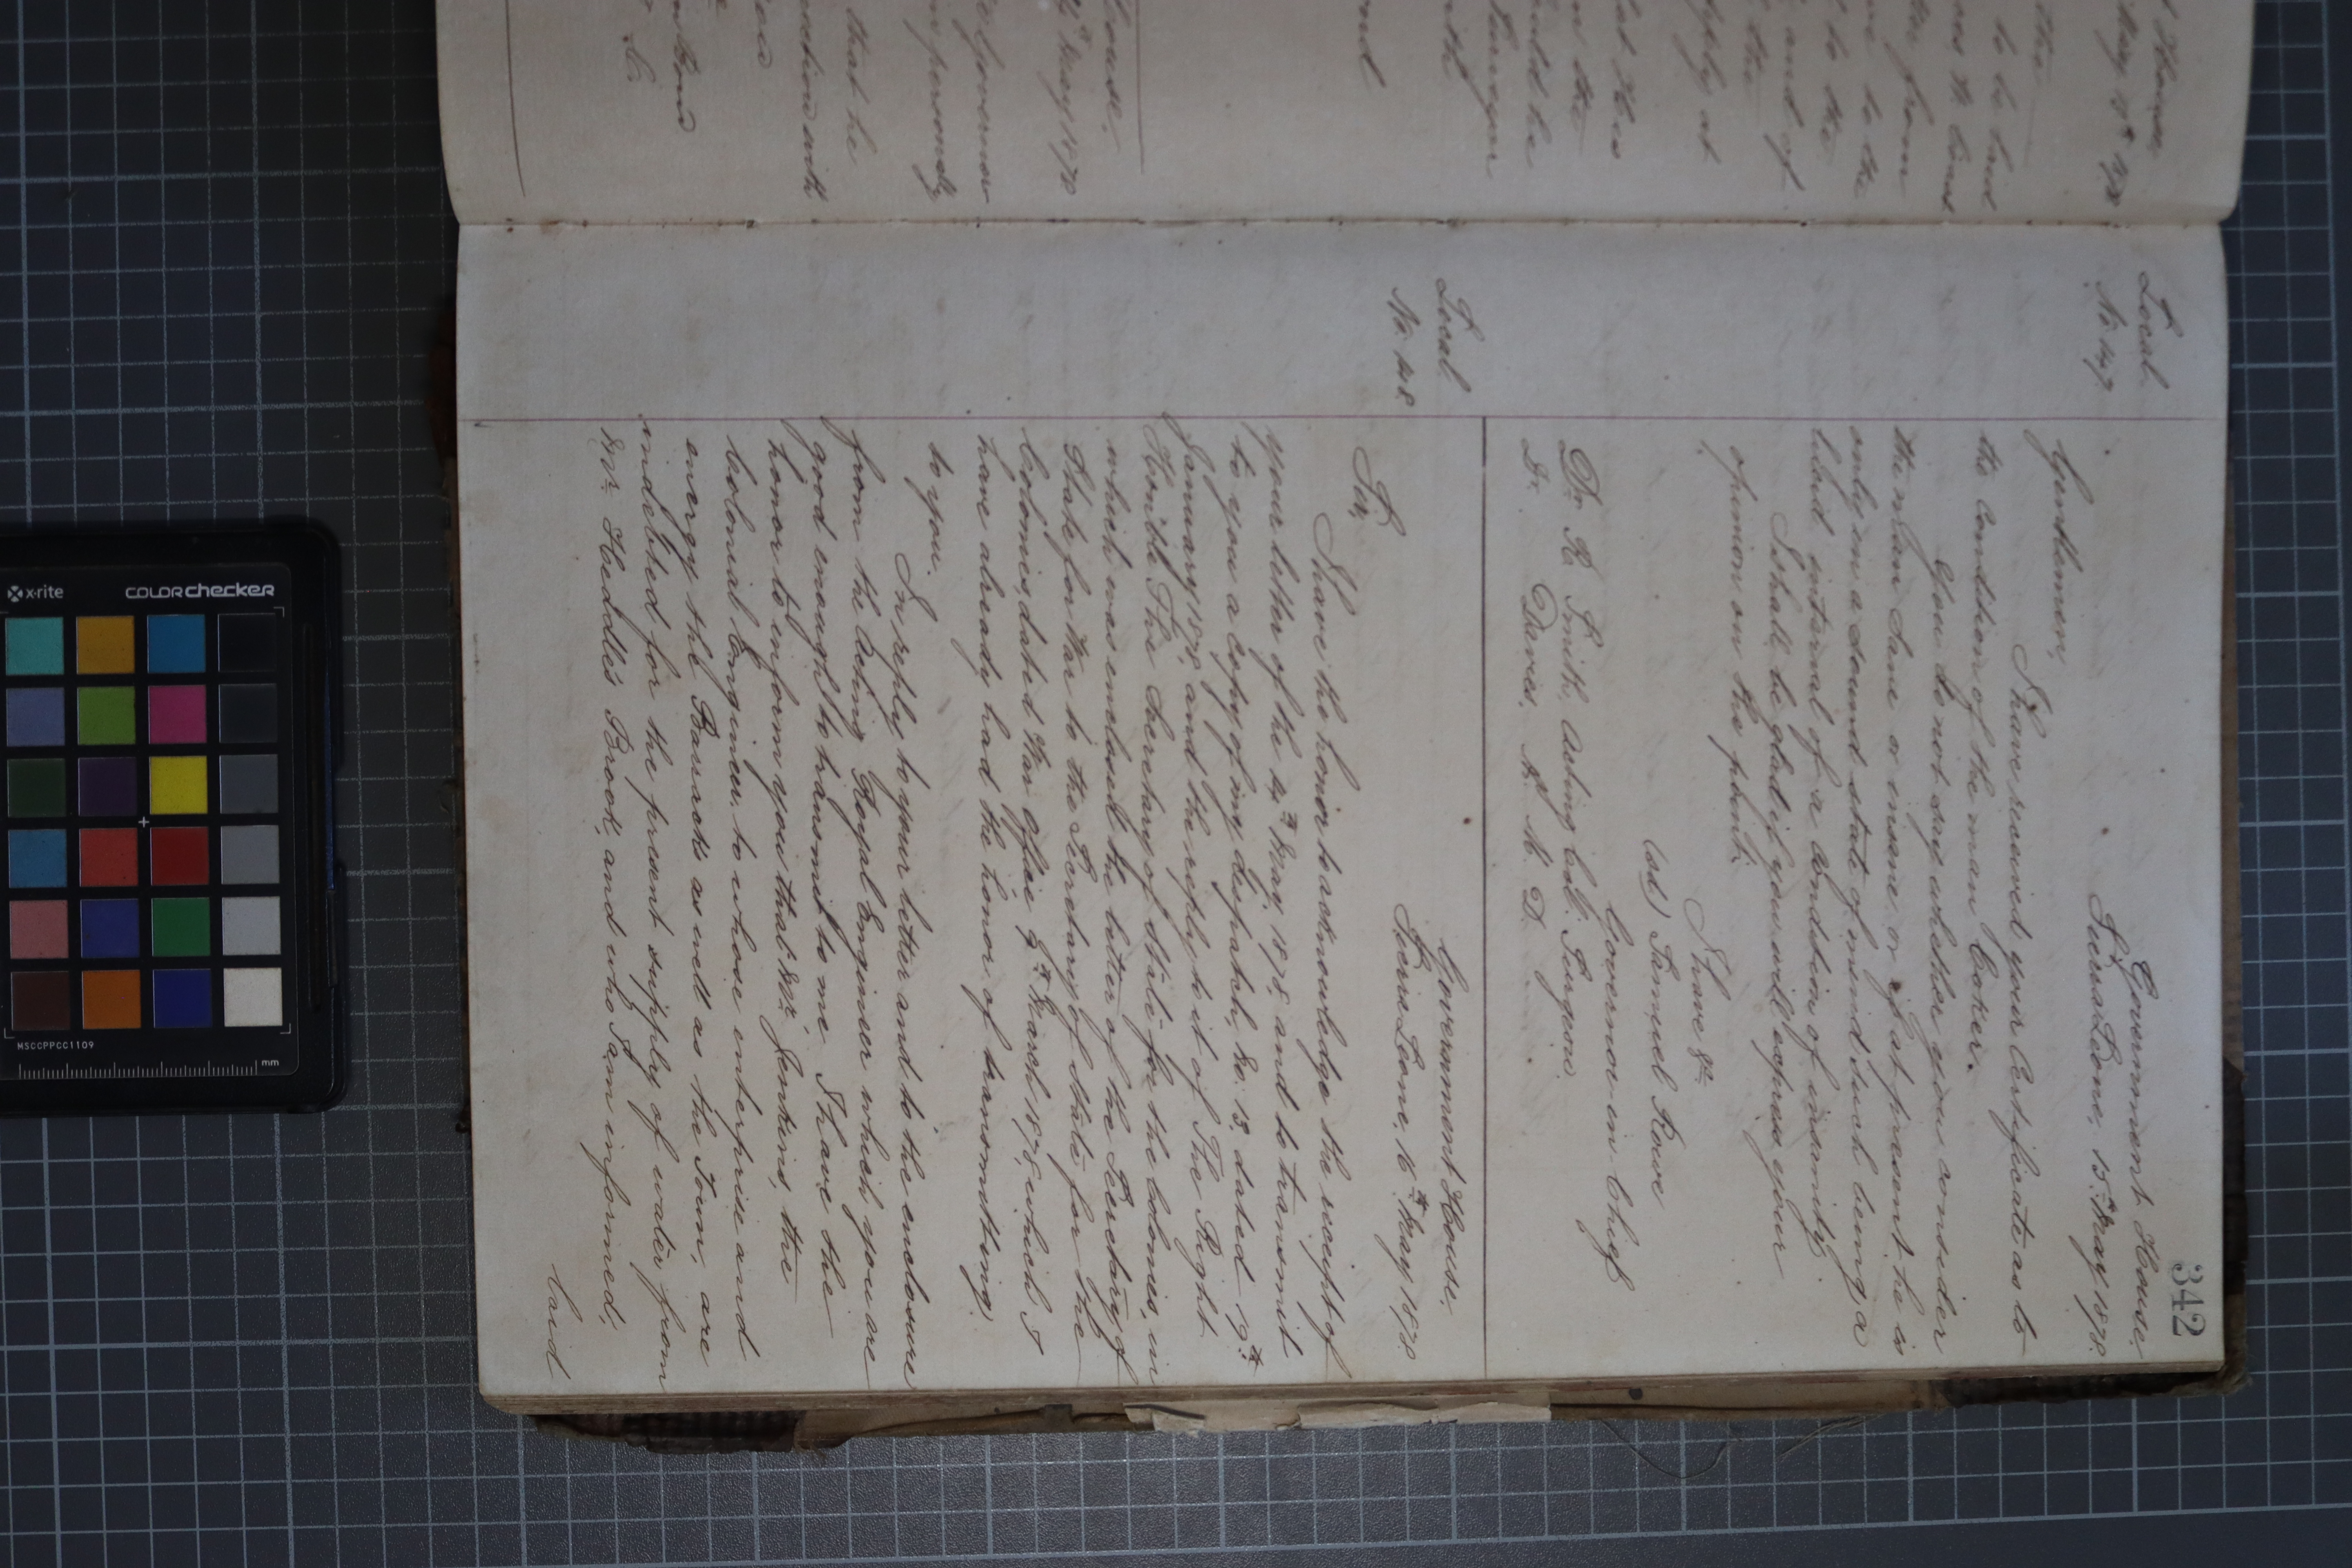 342
Local
No. 147.
Government House.
Sierra Leone, 15th May 1878.
Gentlemen,
I have received your Certificate as to
the Condition of the man Coker.
You do not say whether you consider
the man Sane or insane, or if at present he is
only in a sound state of mind such being a
lucid interval of a condition of insanity.
I shall be glad if you will express your
opinion on the point.
I have &c
(sd) Samuel Rowe
Governor in Chief
Dr. R. Smith, Acting Col. Surgeon.
Dr. Davies. M. D.
Local
No. 148.
Government House.
Sierra Leone, 16th May 1878
Sir,
I have the honor to acknowledge the receipt of
your letter of the 14th May, 1878, and to transmit
to you a copy of my despatch, No. 13, dated 19th
January 1878, and the reply to it of The Right
Honble The Secretary of State for the Colonies, in
which was enclosed the letter of the Secretary of
State for War to the Secretary of State for the
Colonies, dated War Office 9th March 1878, which I
have already had the honor of transmitting
to you.
In reply to your letter and to the enclosure
from the Acting Royal Engineer which you are
good enough to transmit to me I have the
honor to inform you that Mr. Jenkins, the
Colonial Engineer, to whose enterprise and
energy the Barracks as well as the Town, are
indebted for the present supply of water from
Mr. Heddle's Brook, and who I am informed,
laid
House.
to be laid
from
to the
and of
the
supply at
House.
May 1878
Governor
personally
that he